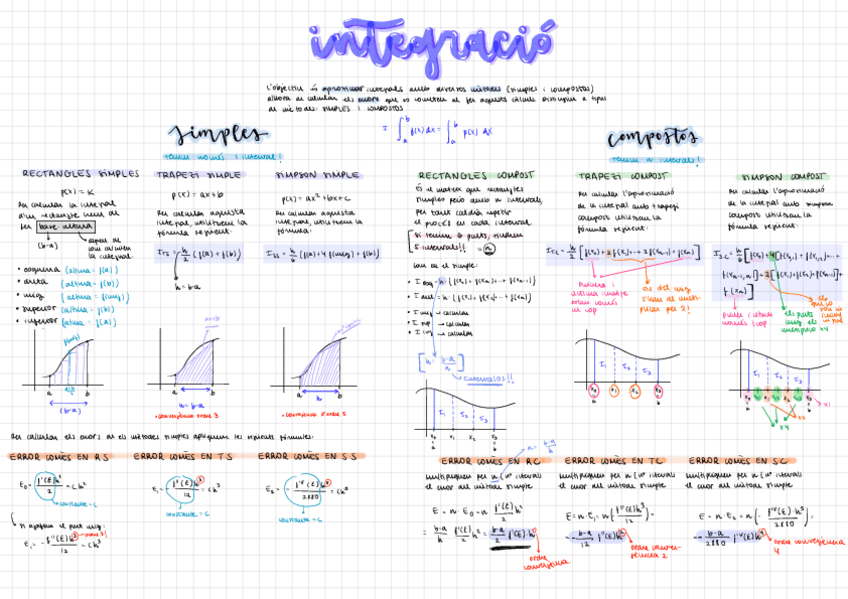 integració
L'objectiu és aproximar integrals amb diversos mètodes (simples i compostos)
alhora de calcular els errors que es cometen al fer aquests càlculs. Distingim 2 tipus
de mètodes: SIMPLES I COMPOSTOS
I ∫ₐᵇ f(x) dx = ∫ₐᵇ p(x) dx
Simples
tenim només 1 interval!
RECTANGLES SIMPLES
P(x) = K
Per calcular la integral
d'un rectangle hem de
fer base · altura
(b-a)
• esquerra (altura = f(a))
• dreta (altura = f(b))
• mig (altura = f(mig))
• superior (altura = f(b))
• inferior (altura = f(a))
a b
(b-a)
TRAPEZI SIMPLE
p(x) = ax+b
Per calcular aquesta
integral, utilitzem la
fórmula següent:
I_TS = h/2 (f(a) + f(b))
h = b-a
a b
h = b-a
• convergència ordre 3
SIMPSON SIMPLE
p(x) = ax² + bx + c
Per calcular aquesta
integral, utilitzem la
fórmula:
I_SS = h/6 (f(a) + 4 f(mig) + f(b))
a b
h
• convergència ordre 5
Per calcular els errors de els mètodes simples apliquem les següents fórmules:
ERROR COMÈS EN RS
E₀ = f'(ξ)h²/2 = ch²
constante = c
Si agafem el punt mig:
E₁ = - f''(ξ)h³/12 = ch³
ERROR COMÈS EN TS
E₁ = - f''(ξ)h³/12 = ch³
constante = c
ERROR COMÈS EN SS
E₂ = - f^IV(ξ)h⁵/2880 = ch⁵
constante = c
compostos
tenim n intervals!
RECTANGLES COMPOST
És el mateix que rectangles
simples però amb n intervals,
per tant caldrà repetir
el procés en cada interval.
Si tenim 6 punts, tindrem
5 intervals!! = n
Com en el simple:
• I esq = h · [f(x₀) + f(x₁) + ... + f(xₙ₋₁)]
• I dret = h · [f(x₁) + f(x₂) + ... + f(xₙ)]
• I mig → calcular
• I sup → calcular
• I inf → calcular
h = b-a/n
intervals!!
I₁ I₂ I₃
x₀ x₁ x₂ x₃
a b
TRAPEZI COMPOST
Per calcular l'aproximació
de la integral amb trapezi
compost utilitzem la
fórmula següent:
I_TC = h/2 [f(x₀) + 2 f(x₁) + ... + 2 f(xₙ₋₁) + f(xₙ)]
primera i
última imatge
només
un cop
els del mig
s'han de multi-
plicar per 2!
I₁ I₂ I₃
a b
SIMPSON COMPOST
Per calcular l'aproximació
de la integral amb simpson
compost utilitzem la
fórmula següent:
primer i últim
només 1 cop
els punts
mig els
multiplico x4
I₁ I₂ I₃
x1
x2
x4
ERROR COMÈS EN RC
n = b-a/h
multipliquem per n (nº intervals)
el error del mètode simple
E = n · E₀ = n · f'(ξ)h²/2
= b-a/h · f'(ξ)/2 h² = b-a/2 f'(ξ) h
ordre
convergència
ERROR COMÈS EN TC
multipliquem per n (nº intervals)
el error del mètode simple
E = n · E₁ = n (- f''(ξ)h³/12) =
= - b-a/12 f''(ξ)h²
ordre conver-
gència 2
ERROR COMÈS EN SC
multipliquem per n (nº intervals)
el error del mètode simple
E = n · E₂ = n (- f^IV(ξ) · h⁵/2880) =
= - b-a/2880 f^IV(ξ)h⁴
ordre convergència
4